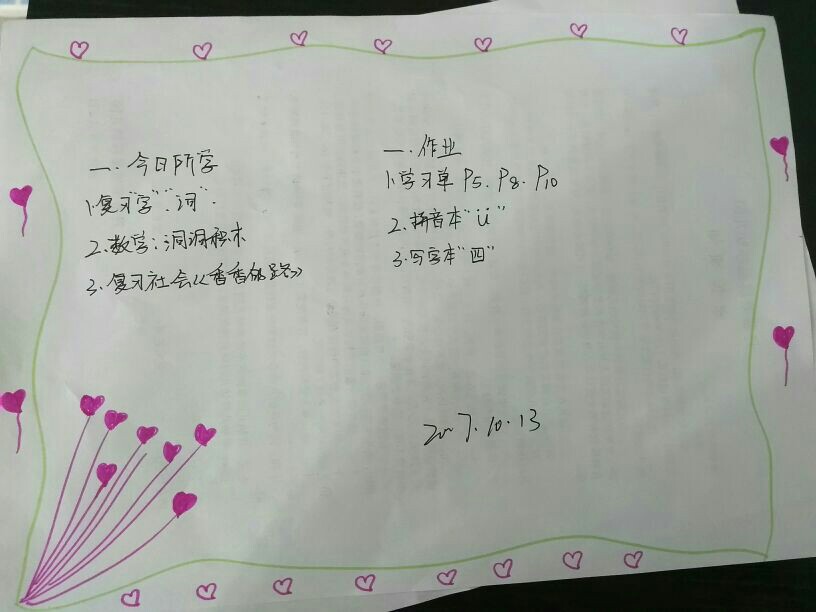 一.今日所学
1.复习"字""词".
2.数学:洞洞积木
3.复习社会《香香的路》
一.作业
1.学习单 P5. P8. P10
2.拼音本"ü"
3.写字本"四"
2017.10.13